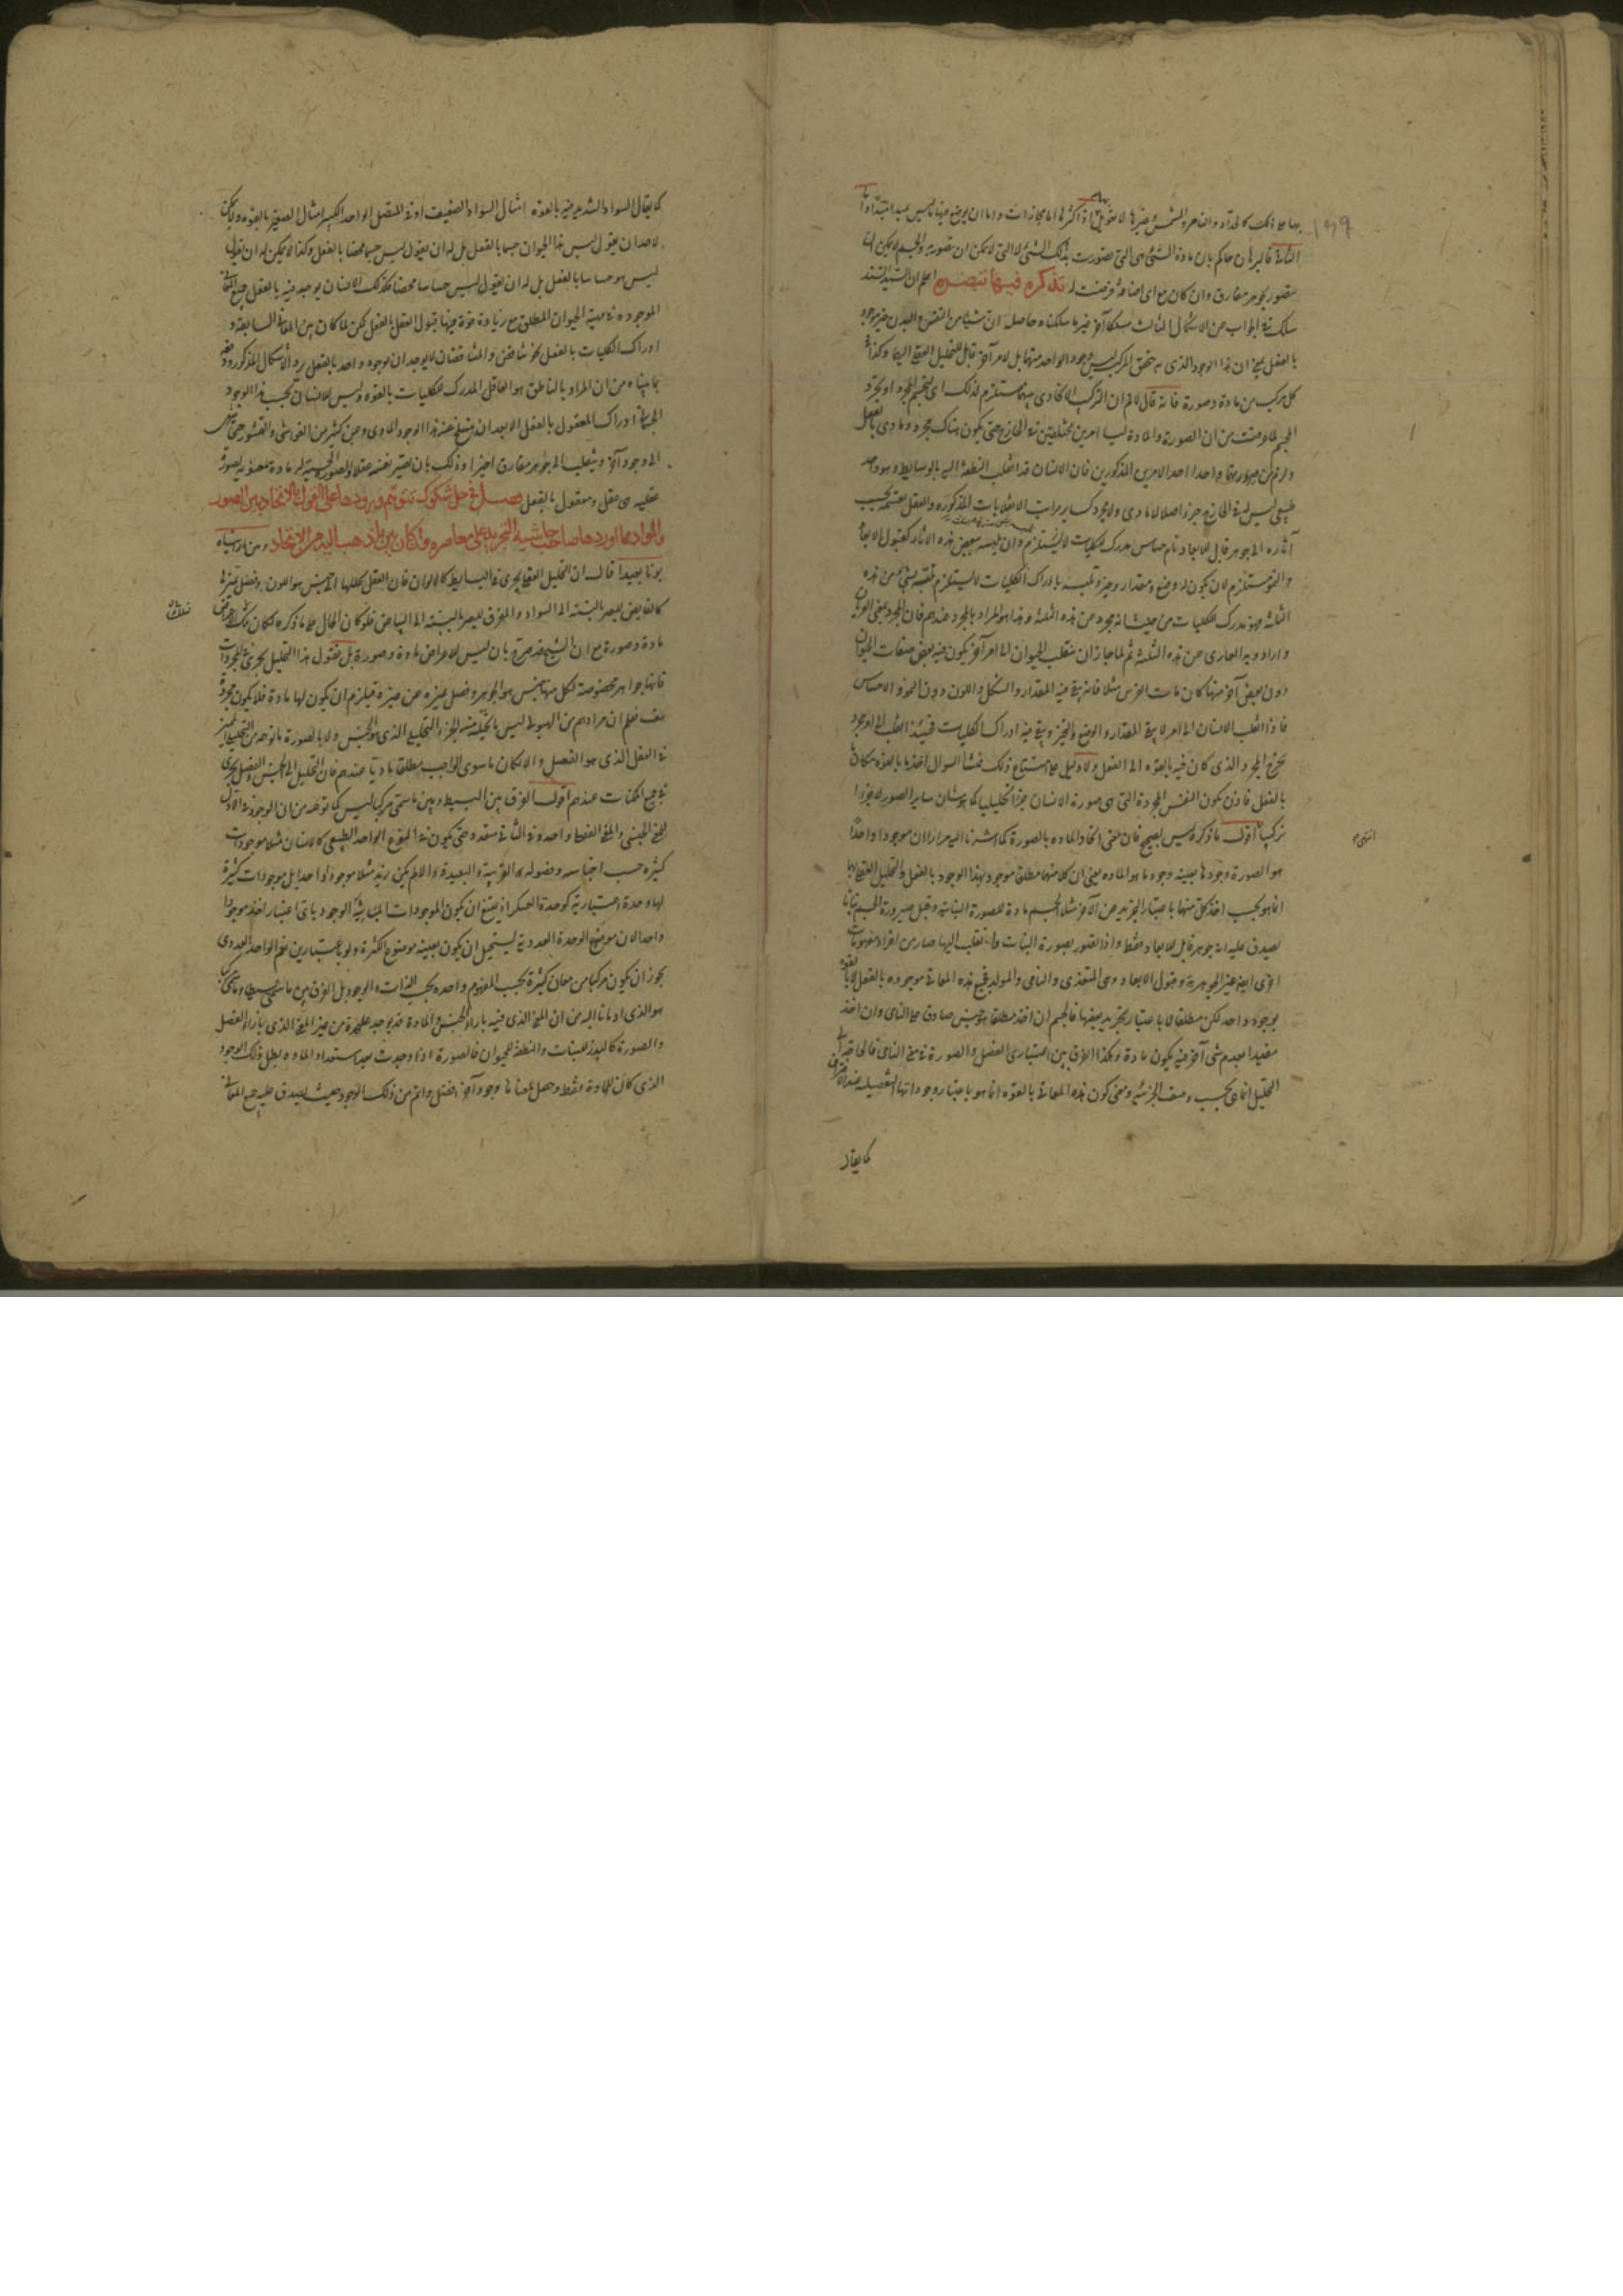 بها على ذلك كالحداد والنار والشمس وغيرها لا تعويل اذ اكثرها اما مجازات واما ان يوضع فيها ما ليس مبدا مبدأ واما
الثانية فالبرهان حاكم بان مادة الشئ هى التى تصورت بذلك الشئ لا التى لا يمكن ان تتصور به والجسم لا يمكن ان
يتصور بجوهر مفارق وان كان مع اى اضافة فرضت له تذكره فيها تبصره اعلم ان السيد السند
سلك فى الجواب عن الاشكال الثالث مسلكا آخر غير ما سلكناه حاصله ان شيئا من النفس والبدن غير موجود
بالفعل بمعنى ان هذا الوجود الذى به تحقق المركب ليس وجود الواحد منهما بل لامر آخر قابل للتحليل العقلى اليهما وكذا فى
كل مركب من مادة وصورة فانه قال لا نم ان التركيب الاتحادى بينهما مستلزم لذلك اى لتجسم المجرد او تجرد
الجسم لما عرفت من ان الصورة والمادة ليسا امرين مختلفين فى الخارج حتى يكون هناك مجرد ومادى بالفعل
ولزم من صيرورتهما واحدا احد الامرين المذكورين فان الانسان قد انقلب النطفة اليه بالوسايط وهو واحد
طبيعى ليس له فى الخارج جزء اصلا لا مادى ولا مجرد كساير مراتب الانقلابات المذكورة والعقل يقسمه بحسب
آثاره الى جوهر قابل للابعاد نام حساس مدرك للكليات لا يستلزم وان تلبسه ببعض هذه الاثار كقبول الابعاد
والنمو مستلزم لان يكون له وضع ومقدار وحيز وتلبسه بادراك الكليات لا يستلزم تلبسه بشئ من هذه
الثلثة فهو مدرك للكليات من حيث انه مجرد عن هذه الثلثة وهذا هو المراد بالمجرد عندهم فان المجرد بمعنى العريان
وارادوا به العارى عن هذه الثلثة ثم لما جاز ان ينقلب الحيوان الى امر آخر يكون فيه بعض صفات الحيوان
دون بعض آخر منها كان مات الفرس مثلا فانه بقى فيه المقدار والشكل واللون دون النمو والاحساس
فاذا انقلب الانسان الى امر لا يبقى المقدار والوضع والتحيز ويبقى فيه ادراك الكليات فحينئذ انقلب الى المجرد
بخرج المجرد الذى كان فيه بالقوه الى الفعل ولا دليل على امتناع ذلك فمنشأ السوال اخذ ما بالقوه مكان ما
بالفعل فاذن يكون النفس المجردة التى هى صورة الانسان جزءا تحليليا كما هو شان ساير الصور لا جزءا
تركيبيا اقول ما ذكره ليس بصحيح فان معنى اتحاد المادة بالصورة كما اشرنا اليه مرارا ان موجودا واحدا
هو الصورة وجودها بعينه وجود ما هو المادة بمعنى ان كلا منهما مطلقا موجود بهذا الوجود بالفعل والتحليل العقلى بهما
انما هو بحسب اخذ كل منهما باعتبار التجريد عن الاخر مثلا الجسم مادة للصورة النباتية وقبل صيرورة الجسم نباتا
يصدق عليه انه جوهر قابل للابعاد فقط واذا تصور بصورة النبات وانقلب اليها صار من افراد مفهومات
اخرى ايضا غير الجوهرية وقبول الابعاد وهى المتغذى والنامى والمولد فجميع هذه المعانى موجوده بالفعل لا بالقوه
بوجود واحد لكن مطلقا لا باعتبار تجريد بعضها فالجسم ان اخذ مطلقا فهو جنس صادق على النامى وان اخذ
مقيدا بعدم شئ آخر فيه يكون مادة وهكذا الفرق بين اعتبارى الفصل والصورة فى معنى النامى فالحاجة الى
التحليل انما هى بحسب وصف الجزئية ومعنى كون هذه المعانى بالقوه انما هو باعتبار وجوداتها التفصيلية عند الافتراق
كما يقال
كما يقال السواد الشديد فيه بالقوه امثال السواد الضعيف او فى المتصل الواحد الكبير امثال الصغير بالقوه ولا يمكن
لاحد ان يقول ليس هذا الحيوان جسما بالفعل بل له ان يقول ليس جسما محضا بالفعل وكذا لا يمكن له ان يقول
ليس هو حساسا بالفعل بل له ان يقول ليس حساسا محضا فكذلك الانسان يوجد فيه بالفعل جميع المعانى
الموجودة فى مهية الحيوان المطلق مع زيادة قوة فيها قبول العقل بالفعل لكن لما كان بين المعانى السابقة و
ادراك الكليات بالفعل نحو تناقض والمتناقضان لا يوجدان بوجود واحد بالفعل يرد الاشكال المذكور ودفعه
بما بيناه من ان المراد بالناطق هو العاقل المدرك للكليات بالقوه وليس للانسان بحسب هذا الوجود
الجسمانى ادراك المعقول بالفعل الا بعد ان ينسلخ عنه هذا الوجود المادى وعن كثير من الغواشى والقشور حتى ينتقل
الى وجود آخر وينقلب الى جوهر مفارق اخيرا وذلك بان تصير نفسه عقلا والصور الحسية له مادة معنوية لصورة
عقليه هى عقل ومعقول بالفعل فصل فى حل شكوك تتوهم ورودها على القول بالاتحاد بين الصور
والمواد مما اوردها صاحب حاشية التجريد على معاصره وان كان بين ما ذهب اليه من الاتحاد وبين ما رمناه
بونا بعيدا قال ان التحليل العقلى يجرى فى البسايط كالالوان فان العقل يحللها الى جنس هو اللون وفصل يميزها
كالقابض للبصر بالنسبة الى السواد والمفرق للبصر بالنسبة الى البياض فلو كان الحال على ما ذكره لكان لتلك الاعراض
مادة وصورة مع ان الشيخ قد صرح بان ليس للاعراض مادة وصورة بل نقول هذا التحليل يجرى فى المجردات
فانها جواهر مخصوصة لكل منها جنس هو الجوهر وفصل يميزه عن غيره فيلزم ان يكون لها مادة فلا يكون مجردة
هف فعلم ان مرادهم من الهيولى ليس ما تخيله من الجزء التحليلى الذى هو الجنس ولا بالصورة ما توهمه من التحليلى المميز
فى العقل الذى هو الفصل والا لكان ما سوى الواجب مطلقا ماديا عندهم فان التحليل الى الجنس والفصل يجرى
فى جميع الممكنات عندهم اقول الفرق بين البسيط وبين ما سمى مركبا ليس كما توهمه من ان الوجود فى الاول
للمعنى الجنسى والمعنى الفصلى واحد وفى الثانى متعدد حتى يكون فى النوع الواحد الطبيعى كالانسان مثلا موجودات
كثيرة حسب اجناسه وفصوله القريبة والبعيدة والا لم يكن زيد مثلا موجودا واحدا بل موجودات كثيرة
لها وحدة اعتبارية كوحدة العسكر اذ يمتنع ان يكون الموجودات المتباينة الوجود باى اعتبار اخذ موجودا
واحدا لان موضوع الوحدة العددية يستحيل ان يكون بعينه موضوع الكثرة ولو باعتبارين نعم الواحد العددى
يجوز ان يكون مركبا من معان كثيرة بحسب المفهوم واحده بحسب الذات والوجود بل الفرق بين ما يسمى بسيطا وما يسمى مركبا
هو الذى اومانا اليه من ان المعنى الذى فيه بازاء الجنس والمادة قد يوجد على حدة من غير المعنى الذى بازاء الفصل
والصورة كالبذر للنبات والنطفة للحيوان فالصورة اذا وجدت بعد استعداد المادة بطل ذلك الوجود
الذى كان للمادة فقط وحصل لمعناها وجود آخر افضل واتم من ذلك الوجود بحيث يصدق عليه جميع المعانى